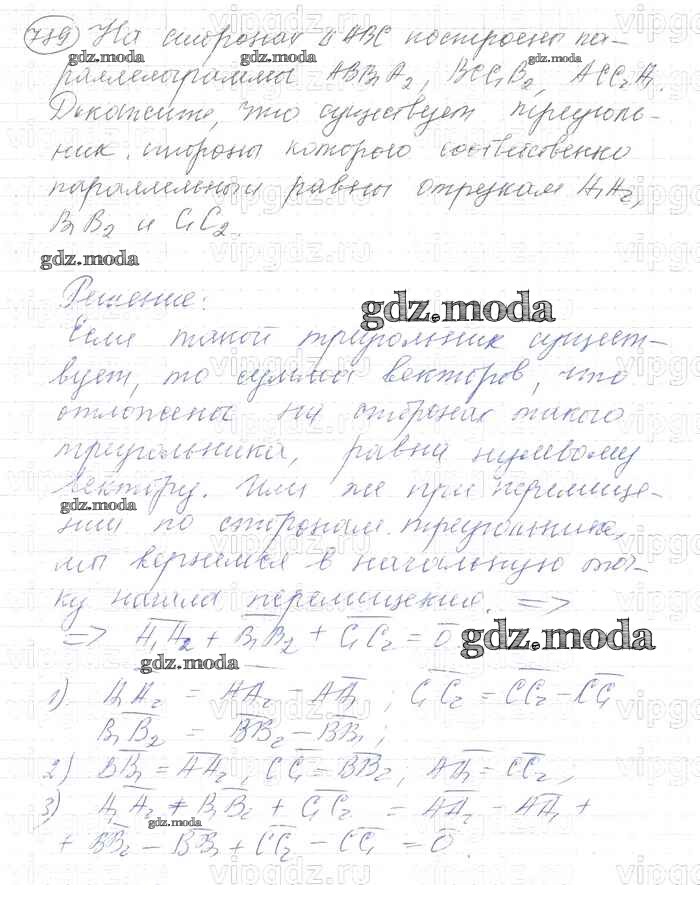 789 На сторонах Δ ABC построены па-
раллелограммы ABB₁A₂, BCC₁B₂, ACC₂A₁.
Докажите, что существует треуголь-
ник, стороны которого соответственно
параллельны и равны отрезкам A₁A₂,
B₁B₂ и C₁C₂.
gdz.moda
Решение:
gdz.moda
Если такой треугольник сущест-
вует, то сумма векторов, что
отложены на сторонах такого
треугольника, равна нулевому
вектору. Или же при перемеще-
нии по сторонам треугольника,
мы вернемся в начальную точ-
ку начала перемещения. =>
=> A₁A₂ + B₁B₂ + C₁C₂ = 0
gdz.moda
1). A₁A₂ = AA₂ − AA₁ ; C₁C₂ = CC₂ − CC₁
B₁B₂ = BB₂ − BB₁ ;
2) BB₁ = AA₂, CC₁ = BB₂, AA₁ = CC₂ ;
3) A₁A₂ + B₁B₂ + C₁C₂ = AA₂ − AA₁ +
+ BB₂ − BB₁ + CC₂ − CC₁ = 0.